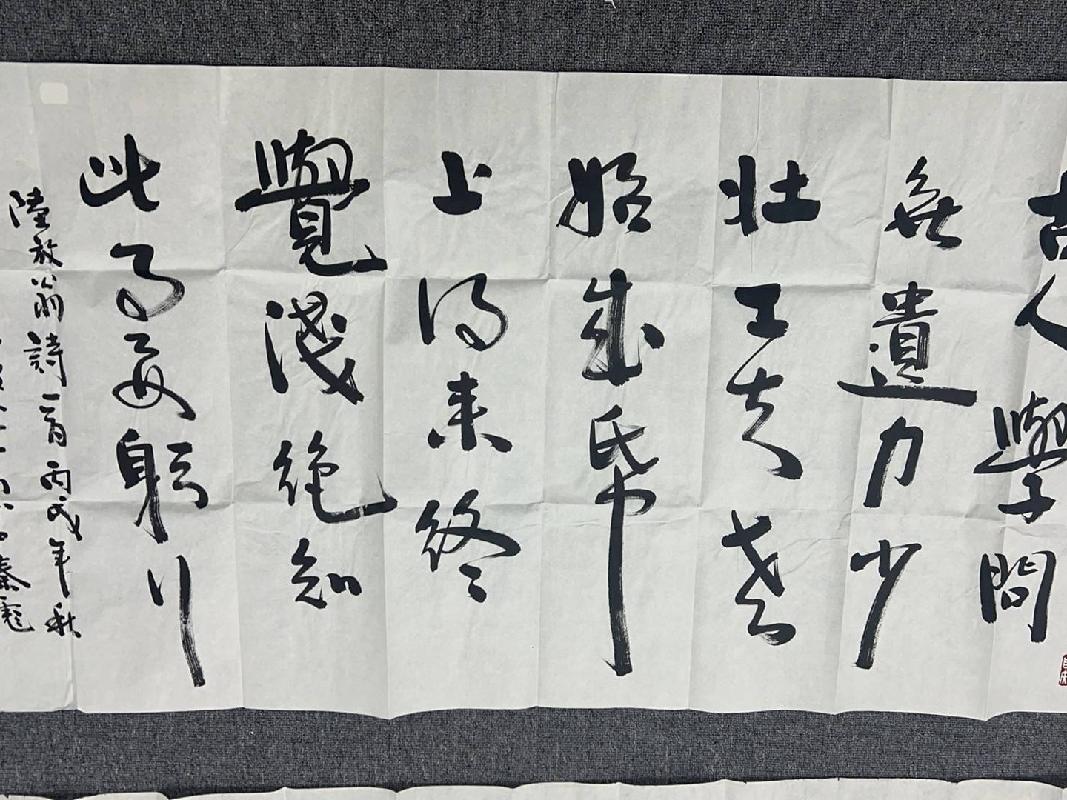 古人學問
無遺力少
壯工夫老
始成帋
上得来終
覺淺絕知
此事要躬行
陸放翁詩一首丙戌年秋